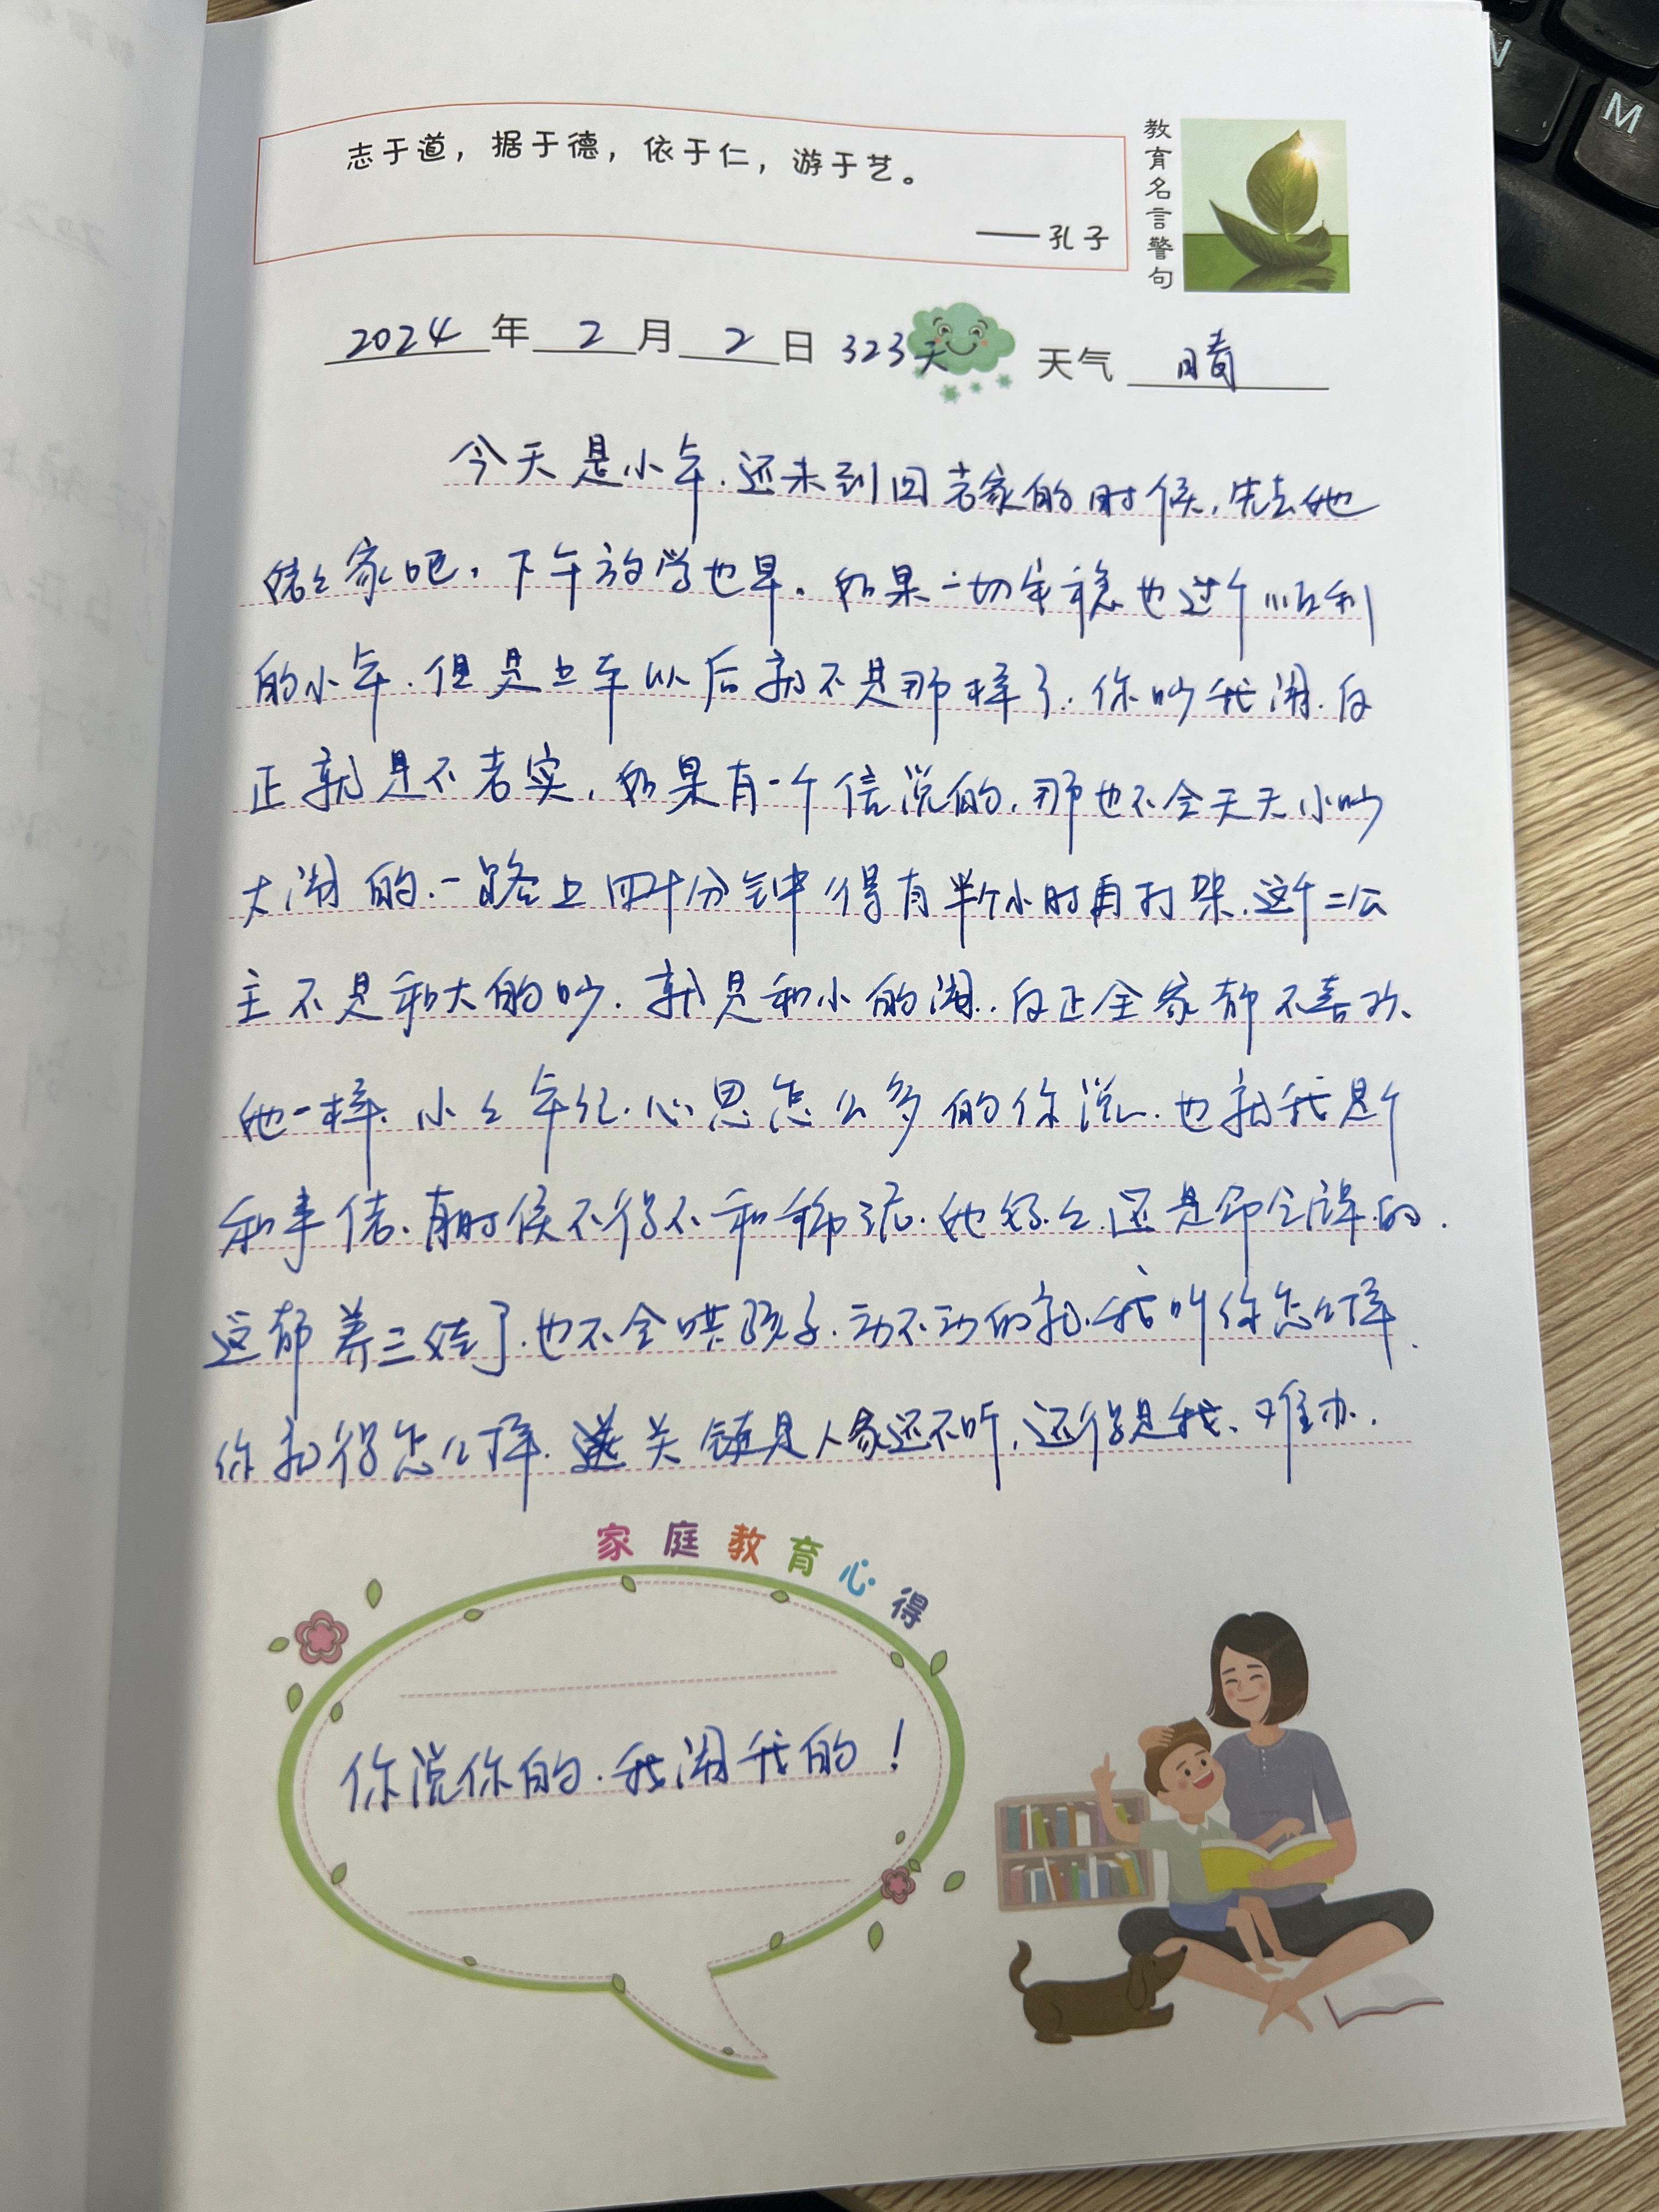 志于道，据于德，依于仁，游于艺。
——孔子
教育名言警句
2024年2月2日 323天 天气 晴
今天是小年.还未到回老家的时候,先去她
姥姥家吧,下午放学也早.如果一切安稳也过个顺利
的小年.但是上车以后就不是那样了.你吵我闹.反
正就是不老实,如果有一个信说的.那也不会天天小吵
大闹的.一路上四十分钟得有半个小时再打架.这个二公
主不是和大的吵.就是和小的闹.反正全家都不喜欢
她一样.小小年纪.心思怎么多的你说.也就我是个
和事佬.有时候不得不和稀泥.她妈妈还是那个洋的.
这都养三娃了.也不会哄孩子.动不动的就.我叫你怎么样.
你就得怎么样.关键是人家还不听,还得是我、难办.
家庭教育心得
你说你的.我闹我的!
N
M